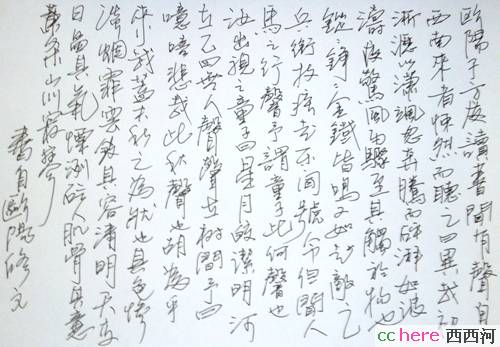 歐陽子方讀書聞有聲自
西南來者悚然而聽之曰異哉初
淅瀝以瀟颯忽奔騰而砰湃如波
濤夜驚風雨驟至其觸於物也
鏦鏦錚錚金鐵皆鳴又如赴敵之
兵銜枚疾走不聞號令但聞人
馬之行聲予謂童子此何聲也
汝出視之童子曰星月皎潔明河
在天四無人聲聲在樹間予曰
噫嘻悲哉此秋聲也胡為乎
來哉蓋夫秋之為狀也其色慘
淡烟霏雲斂其容清明天高
日晶其氣慄冽砭人肌骨其意
蕭條山川寂寥
書自歐陽修文
cchere 西西河